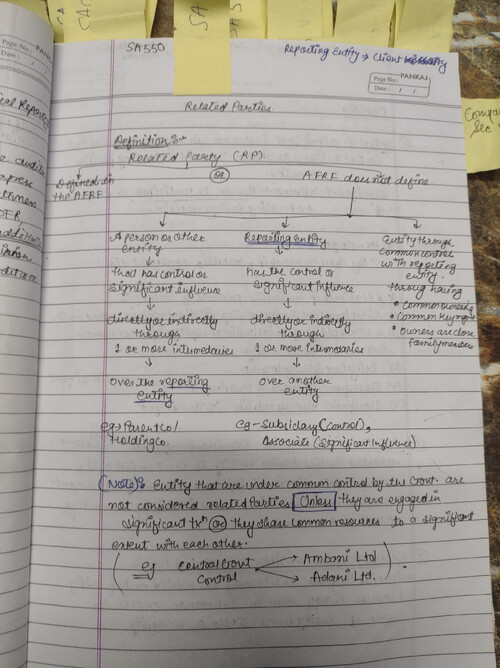 SA
SA550
Reporting Entity → Client
Page No.: PANKAJ
Date: / /
Related Parties
Definition :-
Related Party (RP)
Defined in
the AFRF
OR
AFRF does not define
A person or other
entity
that has control or
significant influence
directly or indirectly
through
1 or more intermedaries
Over the reporting
entity
eg → Parent Co/
Holding Co.
Reporting Entity
has the control or
significant influence
directly or indirectly
through
1 or more intermedaries
over another
entity
eg - Subsidary (control),
Associate (significant Influence)
Entity through
common control
with reporting
entity.
throug having
• common ownership
• common key mgmt
• owners are close
family members
(Note) : Entity that are under common control by the Govt. are
not considered related Parties Unless they are engaged in
significant txn OR they share common resources to a significant
extent with each other.
eg Central Govt → Ambani Ltd
Control → Adani Ltd.
cal Reporting
e audito
xpress
Page No.: PANKAJ
Date: / /
Compa
Sec